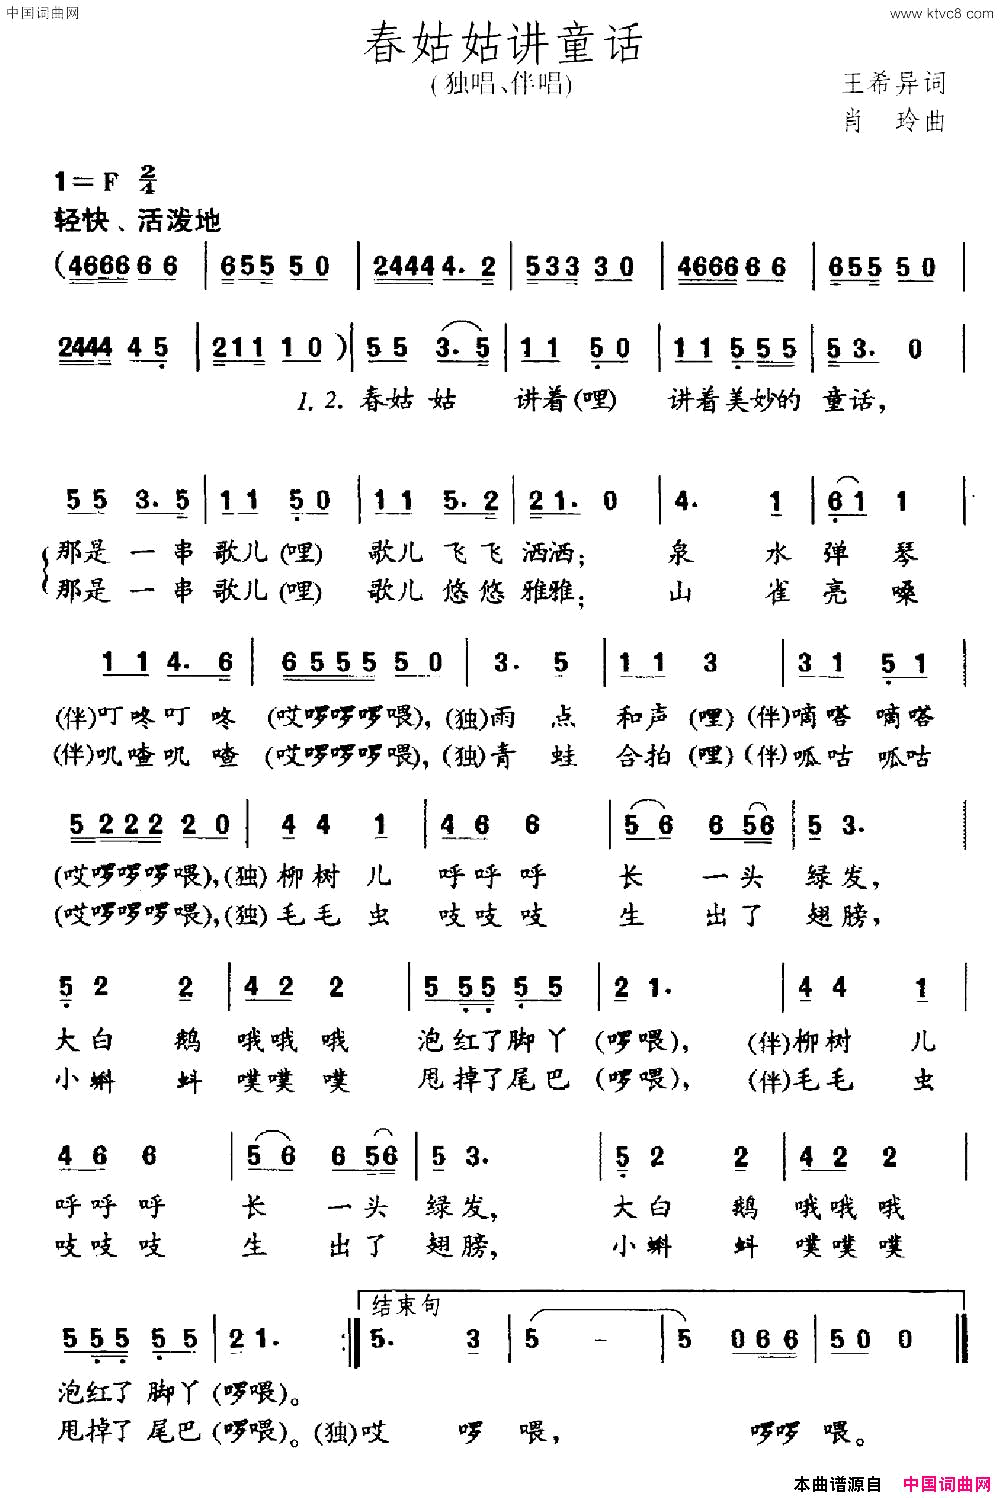 中国词曲网
www.ktvc8.com
春姑姑讲童话
(独唱、伴唱)
王希异词
肖 玲曲
1=F 2/4
轻快、活泼地
(4666 6 6 | 655 5 0 | 2444 4. 2 | 533 3 0 | 4666 6 6 | 655 5 0 |
2444 4 5 | 211 1 0 ) | 5 5 3. 5 | 1 1 5 0 | 1 1 5 5 5 | 5 3. 0 |
1. 2. 春姑 姑 讲着(哩) 讲着美妙的 童话，
5 5 3. 5 | 1 1 5 0 | 1 1 5. 2 | 2 1. 0 | 4. 1 | 6 1 1 |
那是 一 串 歌儿(哩) 歌儿 飞飞 洒洒； 泉 水 弹 琴
那是 一 串 歌儿(哩) 歌儿 悠悠 雅雅； 山 雀 亮 嗓
1 1 4. 6 | 6 5 5 5 5 0 | 3. 5 | 1 1 3 | 3 1 5 1 |
(伴)叮咚叮 咚 (哎啰啰啰喂)，(独)雨 点 和声(哩)(伴)嘀嗒 嘀嗒
(伴)叽喳叽 喳 (哎啰啰啰喂)，(独)青 蛙 合拍(哩)(伴)呱咕 呱咕
5 2 2 2 2 0 | 4 4 1 | 4 6 6 | 5 6 6 56 | 5 3. |
(哎啰啰啰喂)，(独)柳树 儿 呼呼 呼 长 一头 绿发，
(哎啰啰啰喂)，(独)毛毛 虫 吱吱 吱 生 出了 翅膀，
5 2 2 | 4 2 2 | 5 5 5 5 5 | 2 1. | 4 4 1 |
大白 鹅 哦哦 哦 泡红了脚丫 (啰喂)， (伴)柳树 儿
小蝌 蚪 噗噗 噗 甩掉了尾巴 (啰喂)， (伴)毛毛 虫
4 6 6 | 5 6 6 56 | 5 3. | 5 2 2 | 4 2 2 |
呼呼 呼 长 一头 绿发， 大白 鹅 哦哦 哦
吱吱 吱 生 出了 翅膀， 小蝌 蚪 噗噗 噗
结束句
5 5 5 5 5 | 2 1. :‖ 5. 3 | 5 - | 5 0 6 6 | 5 0 0 ‖
泡红了 脚丫 (啰喂)。
甩掉了 尾巴 (啰喂)。(独)哎 啰 喂， 啰啰 喂。
本曲谱源自 中国词曲网